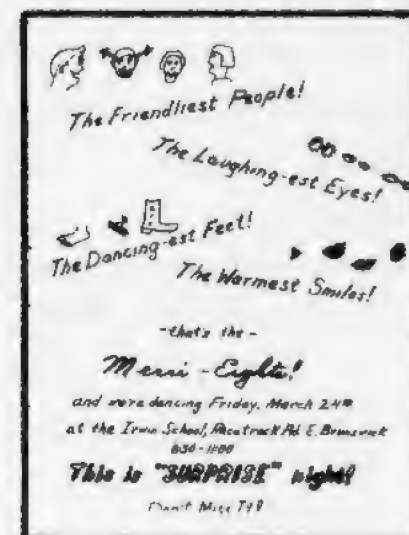 The Friendliest People!
The Laughing-est Eyes!
The Dancing-est Feet!
The Warmest Smiles!
-that's the-
Merri-Eights!
and were dancing Friday, March 24th
at the Irwin School, Racetrack Rd. E. Brunswick
830-1100
This is "SURPRISE" night!
Don't Miss It!